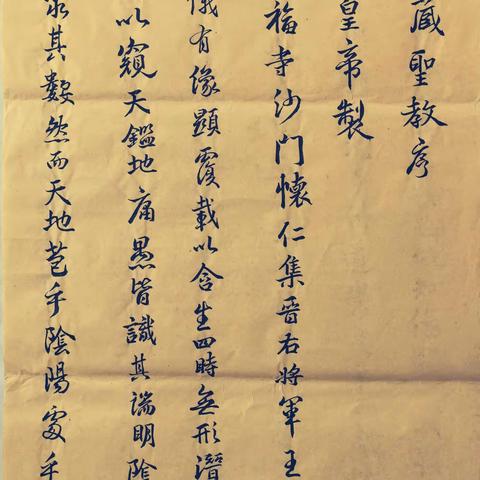 藏聖教序
皇帝製
福寺沙門懷仁集晉右將軍王
儀有像顯覆載以含生四時無形潛
以窺天鑑地庸愚皆識其端明陰
其數然而天地苞乎陰陽處乎